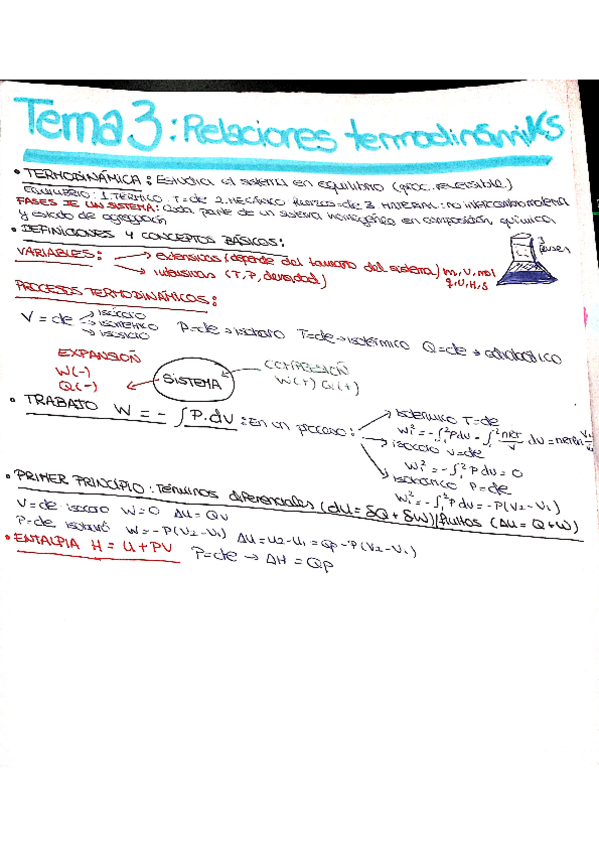 Tema 3: Relaciones termodinámiks
• TERMODINÁMICA: Estudia el sistema en equilibrio (proc. reversible)
EQUILIBRIO: 1. TÉRMICO T=cte 2. MECÁNICO fuerzas=cte 3. MATERIAL: no intercambia materia
FASES DE UN SISTEMA: Cada parte de un sistema homogéneo en composición, química
y estado de agregación
• DEFINICIONES Y CONCEPTOS BÁSICOS:
3 fases
VARIABLES: → extensivas (depende del tamaño del sistema) m, V, mol
q, U, H, S
→ intensivas (T, P, densidad)
PROCESOS TERMODINÁMICOS:
V = cte → isócoro
P=cte → isobaro T=cte → isotérmico Q=cte → adiabático
EXPANSIÓN
W(-)
Q(-)
SISTEMA
COMPRESIÓN
W(+) Q(+)
• TRABAJO W = - ∫P.dV : En un proceso:
→ isotérmico T=cte
→ isocoro V=cte
W₁² = -∫₁² P dV = 0
→ isobárico P=cte
W₁² = -∫₁² P dV = -P(V₂-V₁)
• PRIMER PRINCIPIO: Términos diferenciales (dU = δQ + δW)/finitos (ΔU = Q+W)
V=cte isocoro W=0 ΔU = Qv
P=cte isobaro W=-P(V₂-V₁) ΔU = U₂-U₁ = Qp-P(V₂-V₁)
• ENTALPIA H = U+PV P=cte → ΔH = Qp